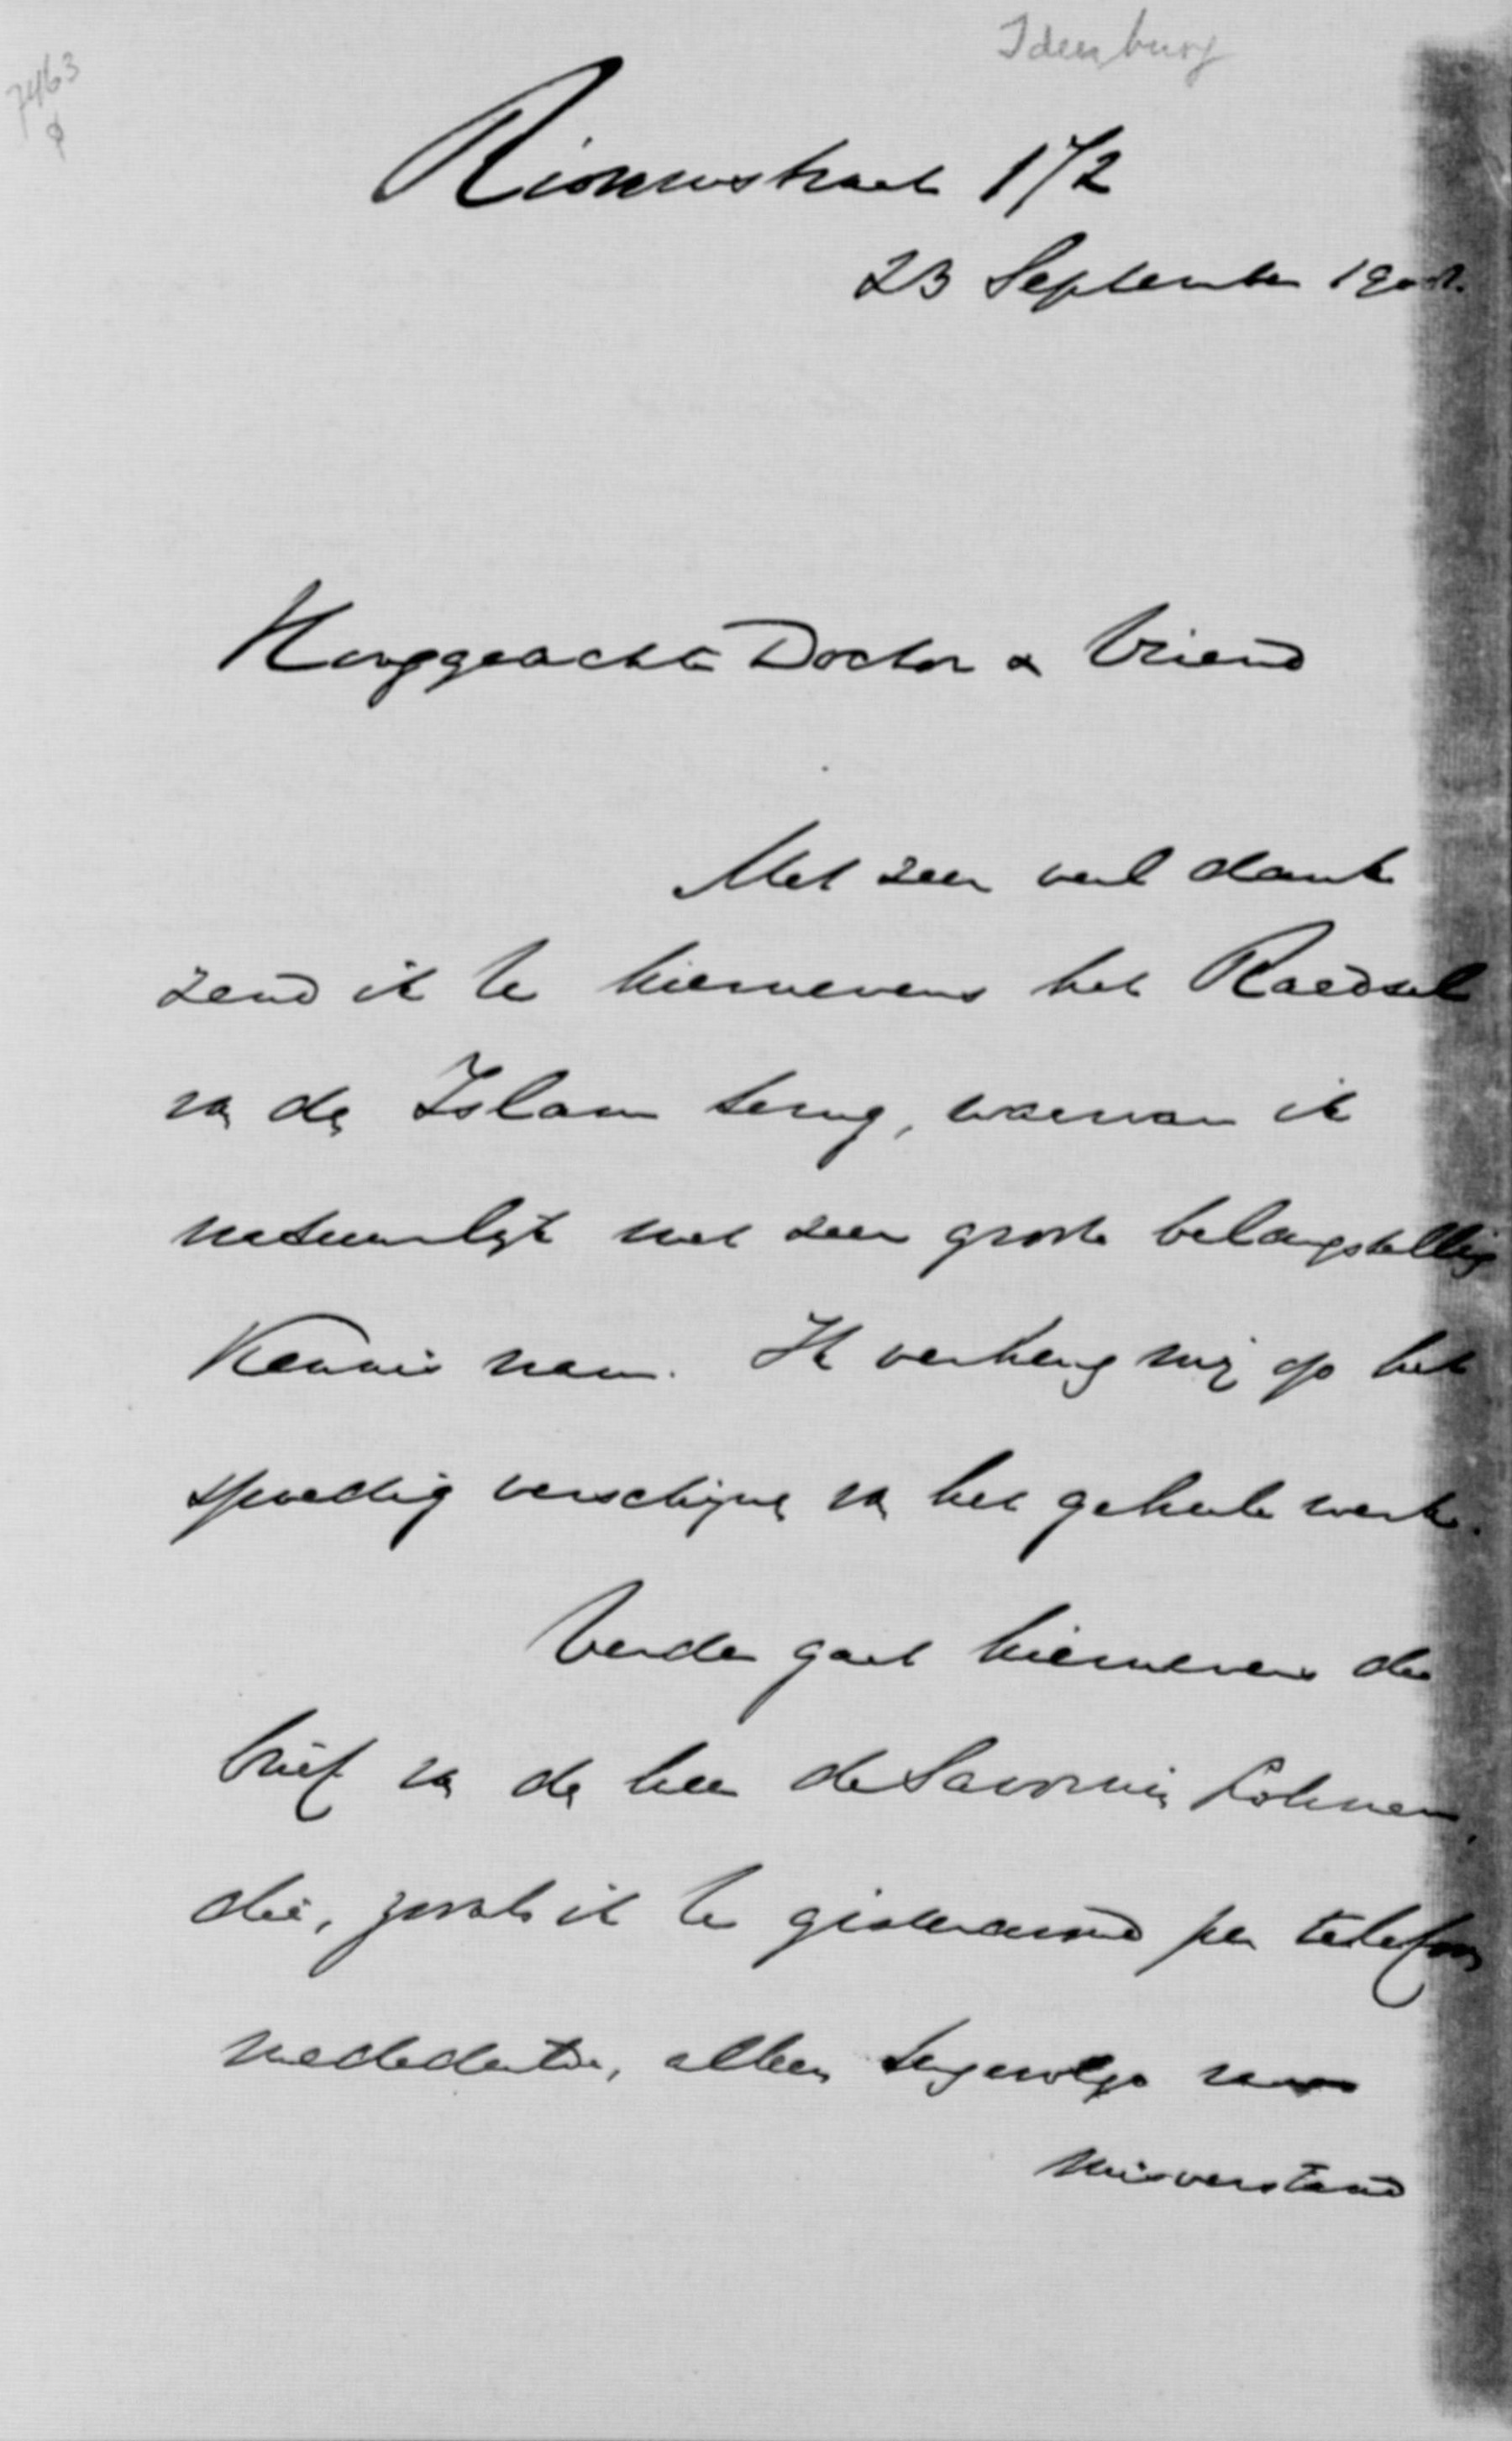 Idenburg
7463
Riouwstraat 172
23 September
Hooggeachte Doctor & Vriend
Met zeer veel dank
zend ik U hiernevens het Raedsel
van den Islam terug, waarvan ik
natuurlijk met zeer groote belangstelling
kennis nam. Ik verheug mij op het
spoedig verschijnen van het geheele werk.
Verder gaat hiernevens de
brief van den heer de Savornin Lohman,
die, zooals ik U gisteravond per telefoon
mededeelde, alleen tengevolge van
misverstand